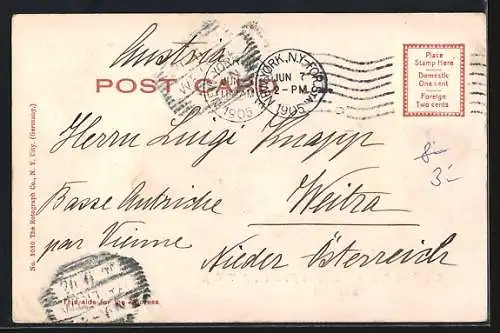 Austria
POST CARD
NEW YORK, N.Y. FOR. STA.
JUN 7
2-PM
1905
NEW YORK
1905
Place
Stamp Here
Domestic
One cent
Foreign
Two cents
Herrn Luigi Knapp
Weitra
Basse Autriche
par Vienne
Nieder Österreich
3.-
No. 1010 The Rotograph Co., N. Y. City. (Germany.)
This side for the address